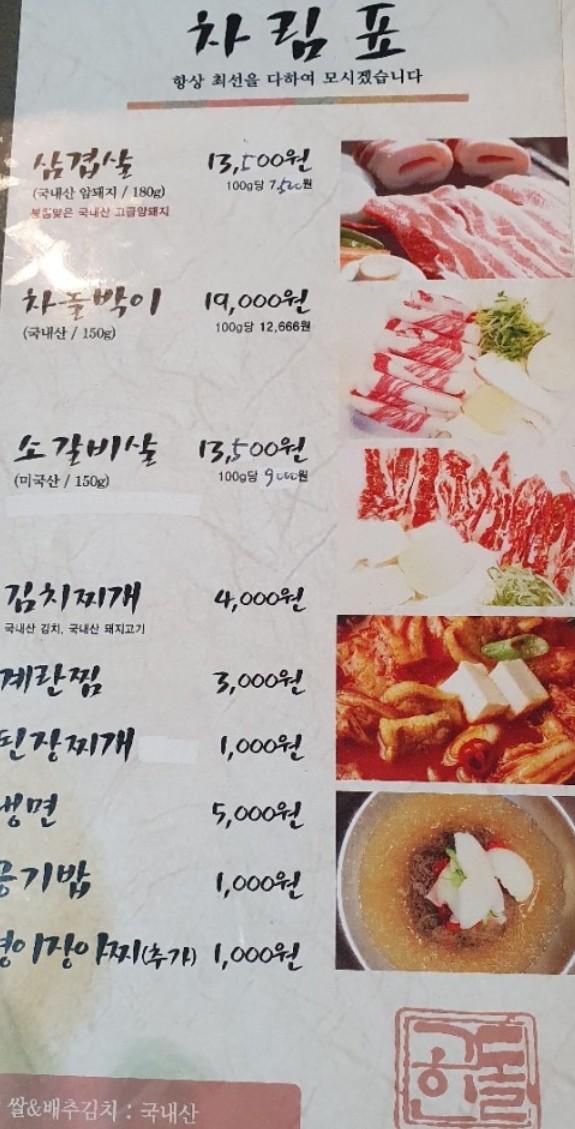 차림표
항상 최선을 다하여 모시겠습니다
삼겹살 13,500원
(국내산 암돼지 / 180g) 100g당 7,500원
국내산 고급암돼지
차돌박이 19,000원
(국내산 / 150g) 100g당 12,666원
소갈비살 13,500원
(미국산 / 150g) 100g당 9000원
김치찌개 4,000원
국내산 김치, 국내산 돼지고기
계란찜 3,000원
된장찌개 1,000원
냉면 5,000원
공기밥 1,000원
명이장아찌(추가) 1,000원
쌀&배추김치 : 국내산